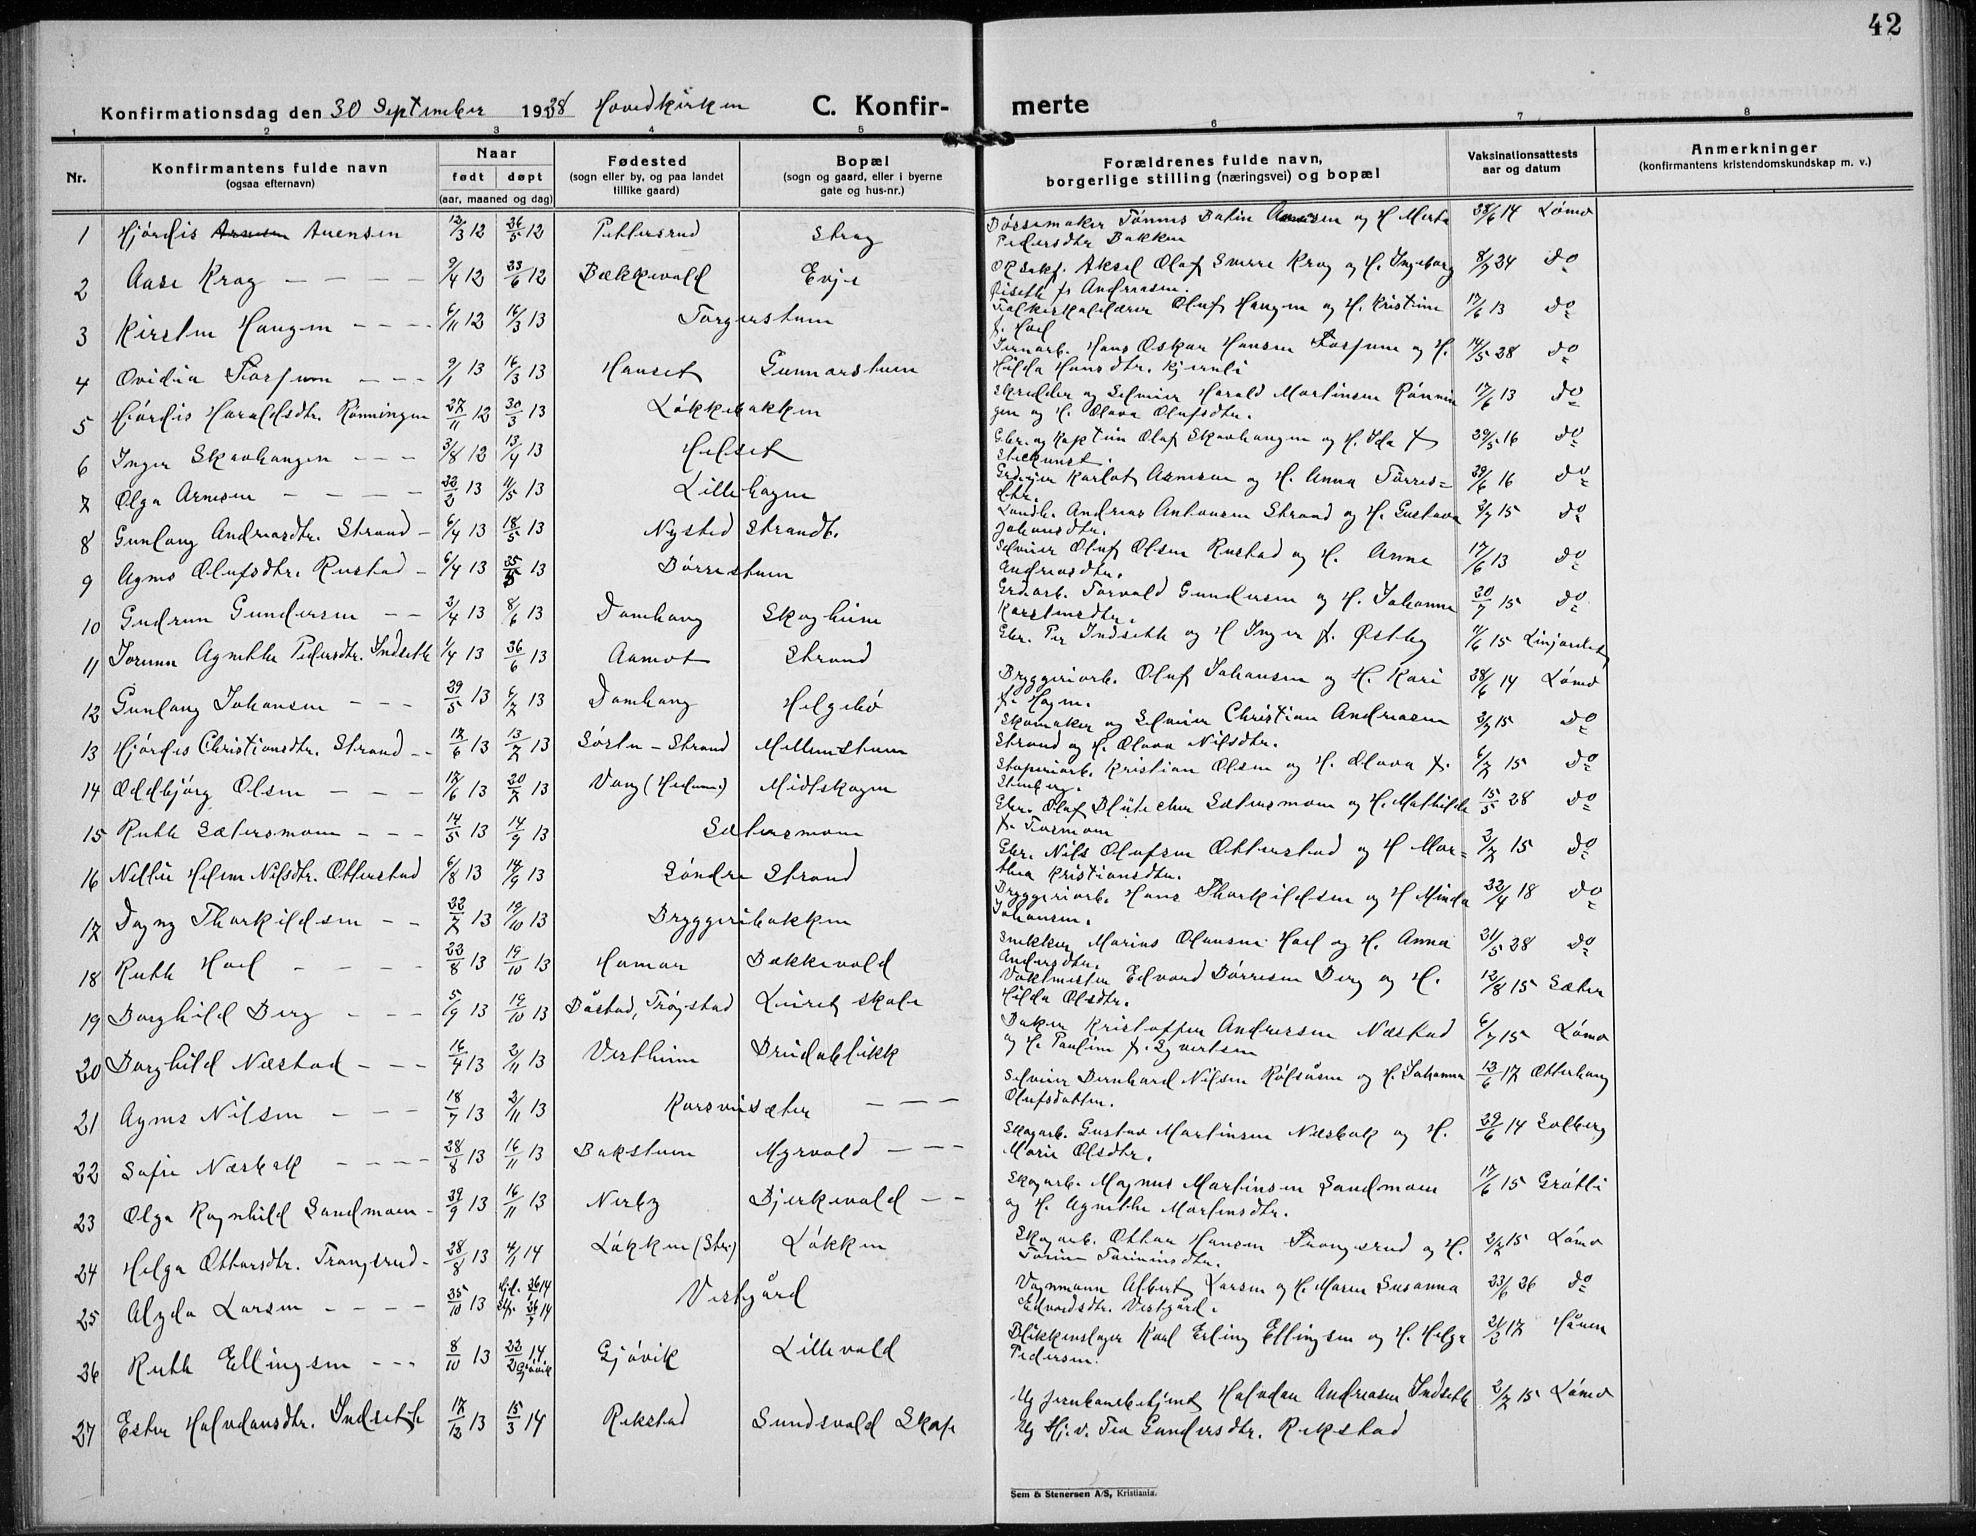 42
Konfirmationsdag den 30 September 1928 Hovedkirken C. Konfir- merte
1 2 3 4 5 6 7 8
Nr. Konfirmantens fulde navn (ogsaa efternavn) Naar født døpt (aar, maaned og dag) Fødested (sogn eller by, og paa landet tillike gaard) Bopæl (sogn og gaard, eller i byerne gate og hus-nr.) Forældrenes fulde navn, borgerlige stilling (næringsvei) og bopæl Vaksinationsattests aar og datum Anmerkninger (konfirmantens kristendomskundskap m. v.)
1 Hjórdis Auensen 12/3 12 26/5 12 Pettersrud Strag Børsemaker og H. Marta
Pedersdtr Bakken 28/6 14 Lømo
2 Aase Krag 9/4 12 23/6 12 Bækkevold Evje Aksel Olaf Sverre Krag og H. Ingeborg
f. Andreasen. 8/7 24 do
3 Kirsten Haugen 6/11 12 16/3 13 Torgerstuen Oluf Haugen og H. Kristine
f. Hoel 17/6 13 do
4 Ovidia Fossum 9/1 13 16/3 13 Hanset Gunnarstuen Jernarb. Hans Oskar Hansen Fossum og H.
Hilda Hansdtr. Kjernli 14/5 28 do
5 Hjórdis Haraldsdtr. Rónningen 27/11 12 30/3 13 Lókkebakken Skredder og Selveier Harald Martinsen Rónnin
gen og H. Olava Olufsdtr. 17/6 13 do
6 Inger Skavhaugen 3/8 12 13/4 13 Helset Gbr. og Kaptein Olaf Skavhaugen og H. Ida f.
Stekunst. 29/5 16 do
7 Olga Arnesen 22/2 13 4/5 13 Lillehagen Karlot Arnesen og H. Anna Tórres=
dtr. 29/6 16 do
8 Gunlaug Andreasdtr. Strand 6/4 13 18/5 13 Nysted Strandb. Landh. Andreas Antonsen Strand og H. Gustava
Johansdtr. 2/7 15 do
9 Agnes Olufsdtr. Rustad 6/4 13 25/5 13 Bórrestuen Selveier Oluf Olsen Rustad og H. Anna
Andreasdtr. 17/6 13 do
10 Gudrun Gundersen 2/4 13 8/6 13 Damhaug Skogheim Grdarb. Torvald Gundersen og H. Johanne
Karstensdtr. 20/7 15 do
11 Jorunn Agnethe Pedersdtr. Indseth 1/4 13 26/6 13 Aamot Strand Gbr. Per Indseth og H Inger f. Østby 11/6 15
12 Gunlaug Johansen 29/5 13 6/7 13 Damhaug Helgebó Bryggeriarb. Oluf Johansen og H. Kari
f. Hagen. 28/6 14 Lømo
13 Hjórdis Christiansdtr. Strand 12/6 13 13/7 13 Sórtn-Strand Mellemstuen Skomaker og Selveier Christian Andreasen
Strand og H. Olava Nilsdtr. 2/7 15 do
14 Oddbjórg Olsen 17/6 13 20/7 13 Vang (Hedem:) Midtskogen Kristian Olsen og H. Olava f.
Stenberg. 6/7 15 do
15 Ruth Sætersmoen 14/5 13 14/9 13 Sætersmoen Gbr. Olaf Blütecher Sætersmoen og H. Mathilde
f. Furmoen 15/5 28 do
16 Nellie Helene Nilsdtr. Otterstad 6/8 13 14/9 13 Søndre Strand Gbr. Nils Olufsen Otterstad og H Mar=
thea Kristiansdtr. 2/7 15 do
17 Dagny Thorkildsen 22/7 13 19/10 13 Bryggeribakken Bryggeriarb. Hans Thorkildsen og H Minda
Johansen. 22/4 18 do
18 Ruth Hoel 23/8 13 19/10 13 Hamar Bækkevold Snekker Marius Olausen Hoel og H. Anna
Andersdtr. 21/5 28 do
19 Borghild Berg 5/9 13 19/10 13 Båstad, Trøgstad Leiret skole Vaktmester Edvard Børresen Berg og H.
Hilda Olsdtr. 12/8 15 Sæter
20 Borghild Næstad 16/4 13 2/11 13 Vestheim Brudeblikk Baker Kristoffer Andersen Næstad
og H. Pauline f. Syvertsen 6/7 15 Lømo
21 Agnes Nilsen 18/7 13 2/11 13 Korsvinsæter Selveier Bernhard Nilsen Rólsåsen og H. Johanna
Olufsdatter. 13/6 17 Otterhaug
22 Sofie Næsbak 28/8 13 16/11 13 Bakstuen Myrvold Skogarb. Gustav Martinsen Næsbak og H.
Marie Olsdtr. 29/6 14 Solberg
23 Olga Ragnhild Sandmoen 29/9 13 16/11 13 Nerby Bjerkevold Skogarb. Magnus Martinsen Sandmoen
og H. Agnethe Martinsdtr. 17/6 15 Gróttli
24 Helga Ottarsdtr. Trangsrud 28/8 13 4/1 14 Lókken (Str.) Lókken Skogarb. Ottar Hansen Trangsrud og H.
2/7 15 Lømo
25 Alyda Larsen 25/10 13 Hjd. 26/1 14 Stf. 26/7 14 Vestgård Vognmann Albert Larsen og H. Maren Susanna
Edvardsdtr. Vestgård. 23/6 26 do
26 Ruth Ellingsen 8/10 13 22/2 14 Gjóvik Gjóvik Lillevold Blikkenslager Karl Erling Ellingsen og H. Helga
Pedersen. 21/3 17
27 Ester Halvdansdtr. Indseth 17/12 13 15/3 14 Rekstad Sundsvold Skole Ug Jernbanebetjent Halvdan Andreasen Indseth
Ug Hj.v. Tea Gundersdtr. Rekstad 2/7 15 Lømo
Sem & Stenersen A/S, Kristiania.